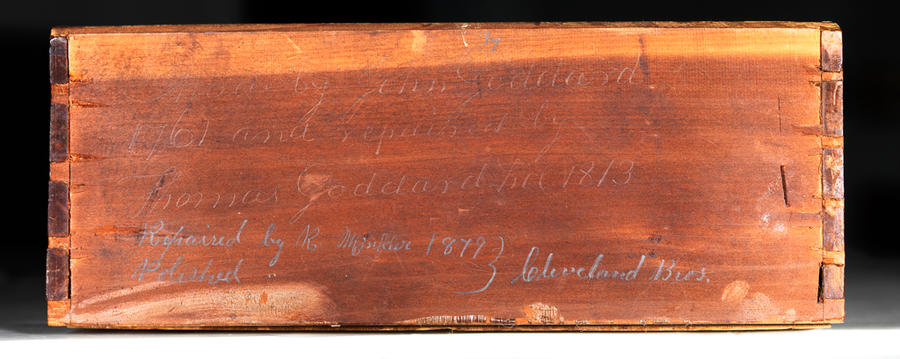 by John Goddard
1761 and repaired by
Thomas Goddard 1813
Repaired by R 1879 }
Polished } Cleveland Bros.